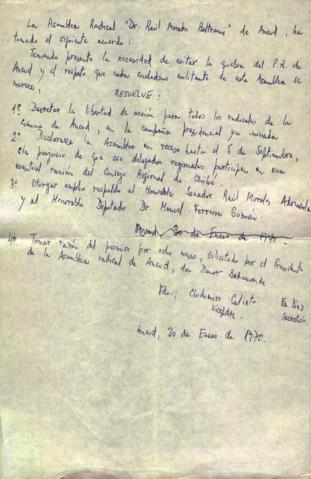 La Asamblea Radical "Dr. Raúl Morales Beltramí" de Ancud, ha
tomado el siguiente acuerdo:
Teniendo presente la necesidad de evitar la quiebra del P.R. de
Ancud y el respeto que cada ciudadano militante de esta Asamblea se
merece,
RESUELVE.
1º Decretar la libertad de acción para todos los radicales de la
comuna de Ancud, en la campaña presidencial ya iniciada
2º Declararse la Asamblea en receso hasta el 5 de Septiembre,
sin perjuicio de que sus delegados regionales participen en una
eventual reunión del Consejo Regional de Chiloé.
3º Otorgar amplio respaldo al Honorable Senador Raúl Morales Adriasola
y al Honorable Diputado Dr. Manuel Ferreira Guzmán
Ancud, 20 de Enero de 1970.
4º Tomar razón del permiso por ocho meses, solicitado por el Presidente
de la Asamblea radical de Ancud, don Bahamonde
Fdo.; Clodomiro
Vicepdte.
Secretario
Ancud, 20 de Enero de 1970.